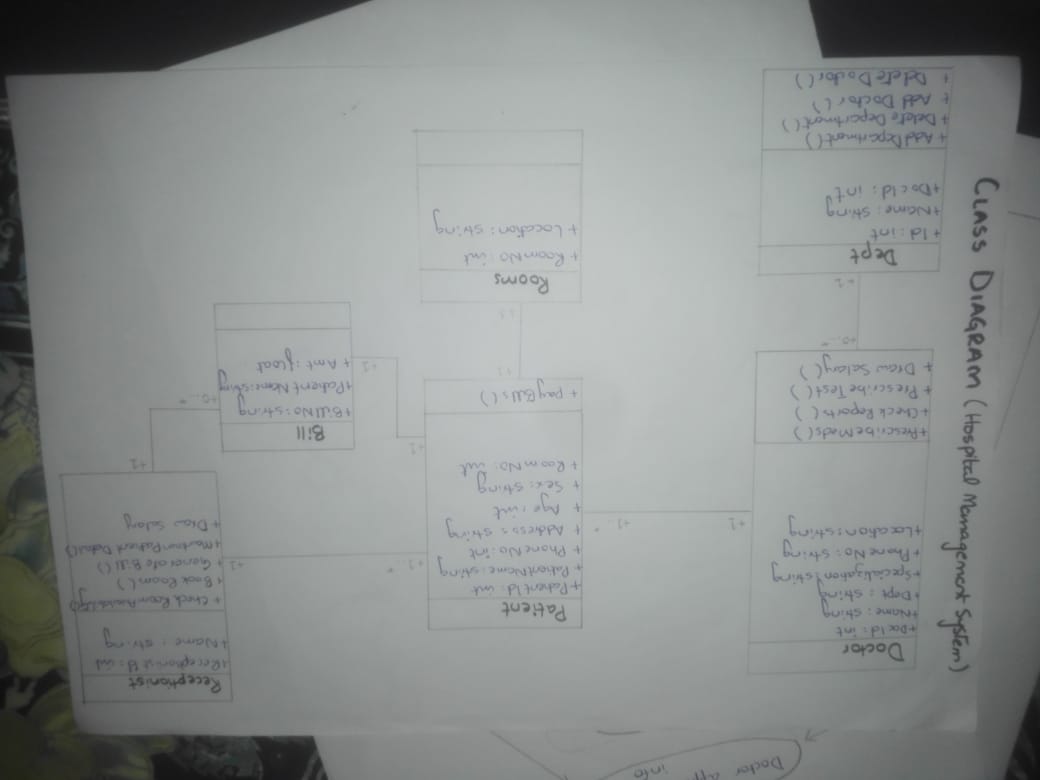 CLASS DIAGRAM (Hospital Management System)
Doctor
+DocId: int
+Name: string
+Dept: string
+Specialization: string
+Phone No: string
+Location: string
+PrescribeMeds()
+Check Reports()
+Prescribe Test()
+ Draw Salary()
+0..*
+1
Dept
+Id: int
+Name: string
+DocId: int
+Add Department()
+Delete Department()
+ Add Doctor()
+ Delete Doctor()
+1
+1..*
Patient
+Patient Id: int
+Patient Name: string
+ Phone No: int
+ Address: string
+ Age: int
+ Sex: string
+ Room No: int
+ payBills()
+1
Rooms
+ Room No: int
+ Location: string
+1
+1
Bill
+Bill No: string
+Patient Name: string
+ Amt: float
+0..*
+1
Receptionist
+Receptionist Id: int
+Name: string
+ Check Room
+ Book Room()
+Generate Bill()
Patient
+ Draw Salary
+1
+1..*
Doctor app
info